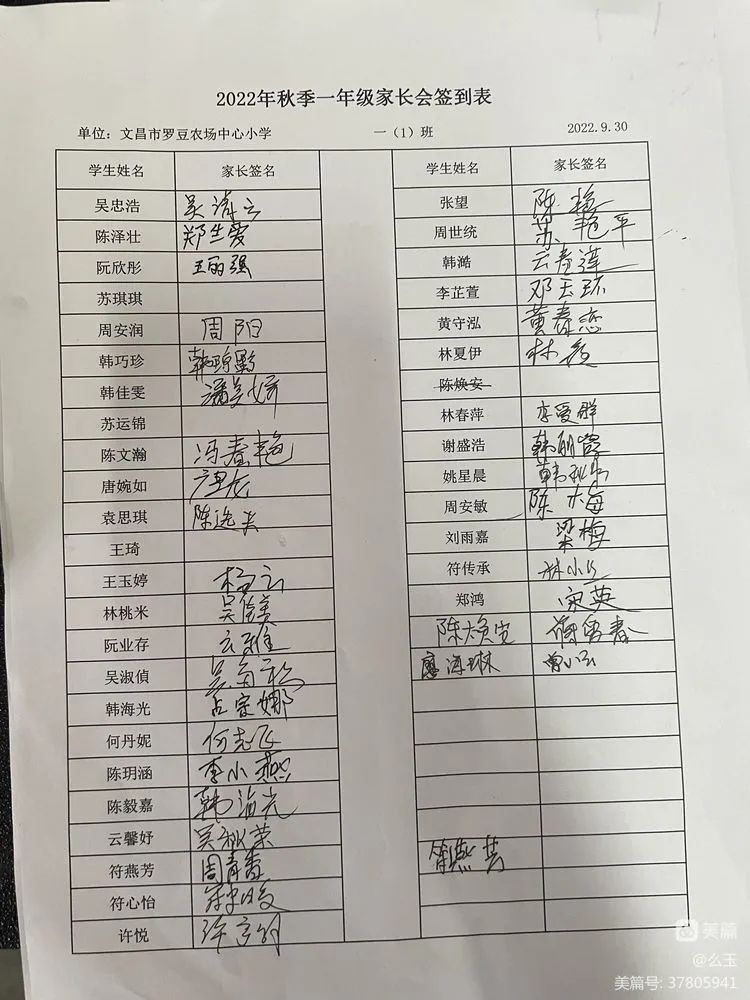 2022年秋季一年级家长会签到表
单位：文昌市罗豆农场中心小学 一（1）班 2022.9.30
学生姓名 家长签名 学生姓名 家长签名
吴忠浩 张望 陈
陈泽壮 周世统 苏艳平
阮欣彤 王丽强 韩澔 云春莲
苏琪琪 李芷萱 邓玉环
周安润 周阳 黄守泓 黄春恋
韩巧珍 韩琼 林夏伊 林
韩佳雯 潘美妍 陈焕安
苏运锦 林春萍 李爱群
陈文瀚 冯春艳 谢盛浩 韩丽霞
唐婉如 姚星晨 韩
袁思琪 陈选 周安敏 陈梅
王琦 刘雨嘉 梁梅
王玉婷 杨云 符传承 林小
林桃米 吴 郑鸿 宋英
阮业存 云雅 陈焕安 春
吴淑侦 吴 廖海琳 曾小
韩海光 占 娜
何丹妮 何志飞
陈玥涵 李小燕
陈毅嘉 韩海光
云馨妤 吴秋荣 燕芸
符燕芳 周青
符心怡
许悦 许
美篇
@么玉
美篇号: 37805941